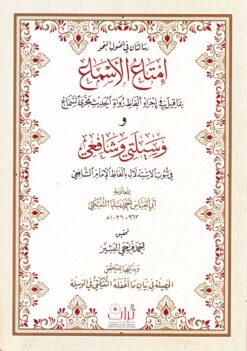 رسالتان في أصول النحو
إمتاع الأسماع
بما قيل في إجراء ألفاظ رواة الحديث مجرى السماع
و
وسيلتي وشافعي
في ثبوت الاستدلال بألفاظ الإمام الشافعي
للعلامة
أبي العباس أحمد بابا التنبكتي
٩٦٣-١٠٣٦هـ
تحقيق
أحمد فتحي البشير
وبذيلها للمحقق
الحصيلة في بيان ما أغفله التنبكتي في الوسيلة
تراث